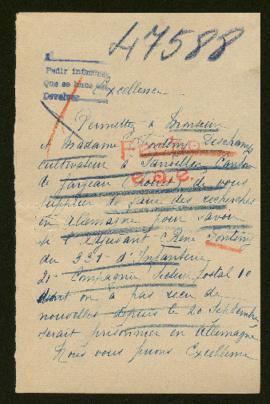 47588
Pedir informes
Que se haga
Devolver
Excellence
Permettez à Monsieur
et Madame Deschamps
cultivateur à Canton
de Jargeau de vous
supplier de faire des recherches
en Allemagne pour savoir
si l'adjudant René
du 331e d'Infanterie
21e Compagnie Secteur postal 10
dont on a pas reçu de
nouvelles depuis le 20 Septembre
serait prisonnier en Allemagne
Nous vous prions Excellence